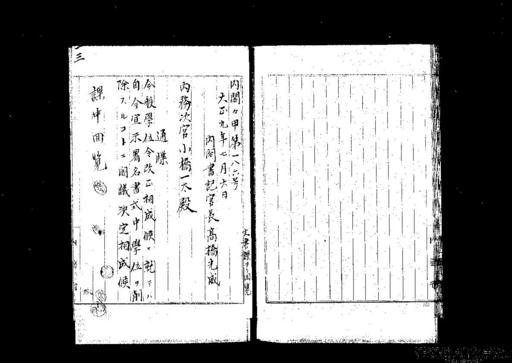 内閣閣甲第一八六号
大正九年七月六日
内閣書記官長高橋光威
内務次官小橋一太殿
通牒
今般学位令改正相成候ニ就テハ
自今宣示署名書式中学位ヲ削
除スルコトニ閣議決定相成候
課中回覧
三